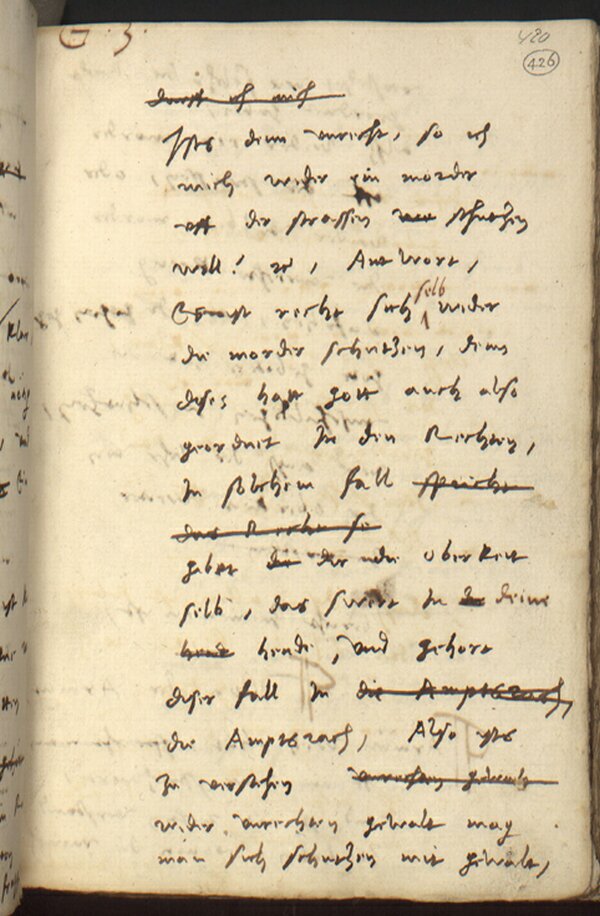 G. 3.
420
426
darff ich mich
Ists denn unrecht, so ich
mich wider ein morder
uff der strassen schutzen
woll? Antwort,
Es ist recht sich selb wider
die morder schutzen, denn
dises hatt gott auch also
geordnet In den Rechten,
In solchem fall spricht
das Recht se
gibt dir die Oberkeit
selb, das swert In deine
hend hende, und gehort
diser fall In die Amptsrach,
die Amptsrach, Also ists
zu verstehen unrechten gewalt
wider unrechten gewalt mag
man sich schutzen mit gewalt,